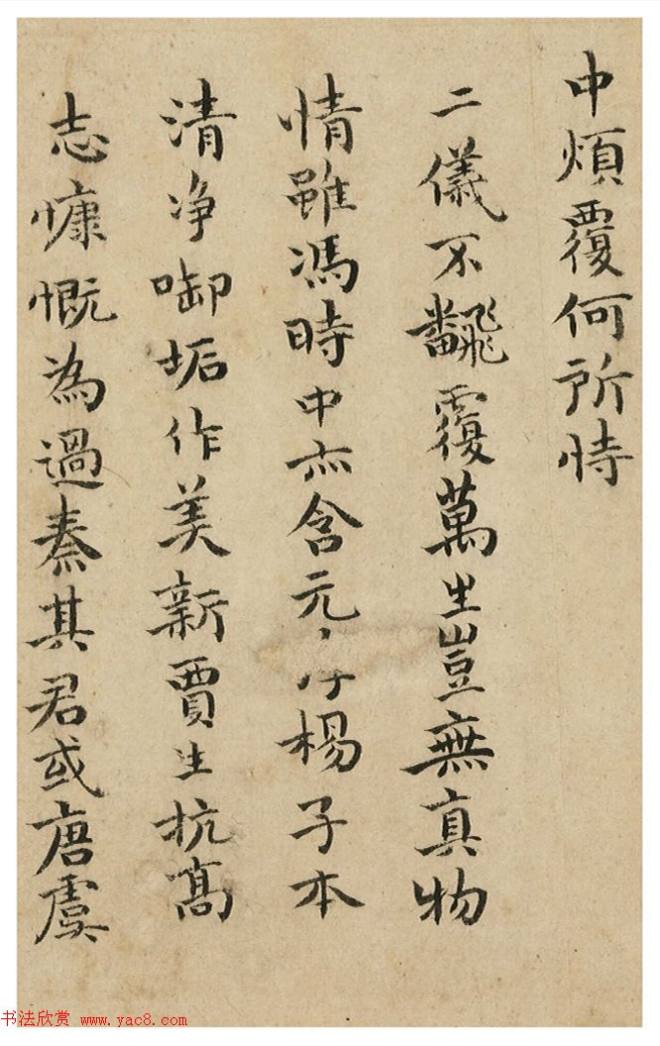 中煩覆何所恃
二儀不飜覆萬生豈無真物
情雖馮時中亦含元楊子本
清净啣垢作美新賈生抗髙
志慷慨為過秦其君或唐虞
书法欣赏 www.yac8.com